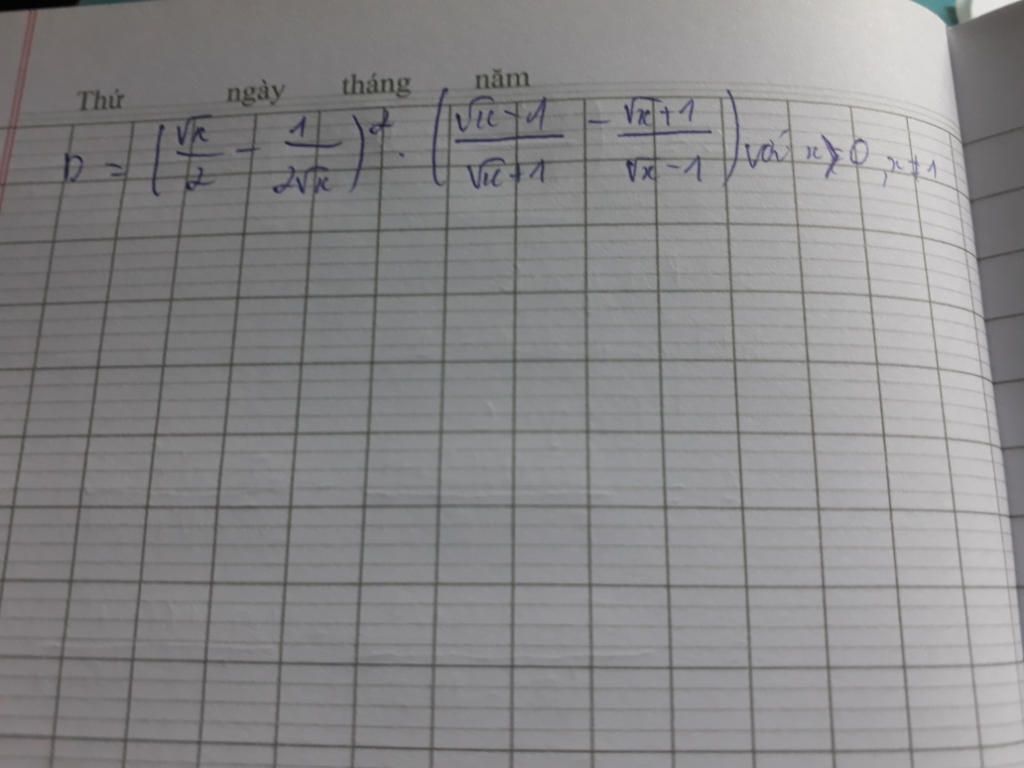 Thứ ngày tháng năm
D = (√x/2 - 1/2√x)² . (√x-1/√x+1 - √x+1/√x-1) với x > 0, x ≠ 1